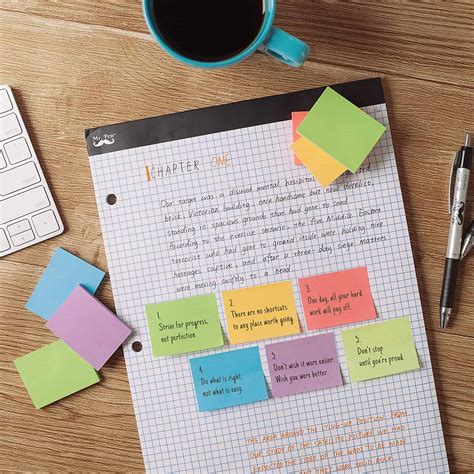 Mr. Pen
CHAPTER ONE
Our target was a disused mental hospital
brick, Victorian building, once handsome but now derelict,
standing in spacious grounds that had gone to seed.
According to the exercise scenario, the five Middle Eastern
terrorists who had gone to ground inside were holding nine
hostages captive, and after a three-day siege matters
were moving swiftly to a head.
1.
Strive for progress,
not perfection.
2.
There are no shortcuts
to any place worth going.
3.
One day, all your hard
work will pay off.
4.
Do what is right,
not what is easy.
5.
Don't wish it were easier.
Wish you were better.
5.
Don't stop
until you're proud.
THE AREA AROUND THE LYING-UP POSITION. FROM
OUR STUDY OF THE SATELLITE PICTURE WE HAD
EXPECTED THE SIDES OF THE WADI TO BE MADE